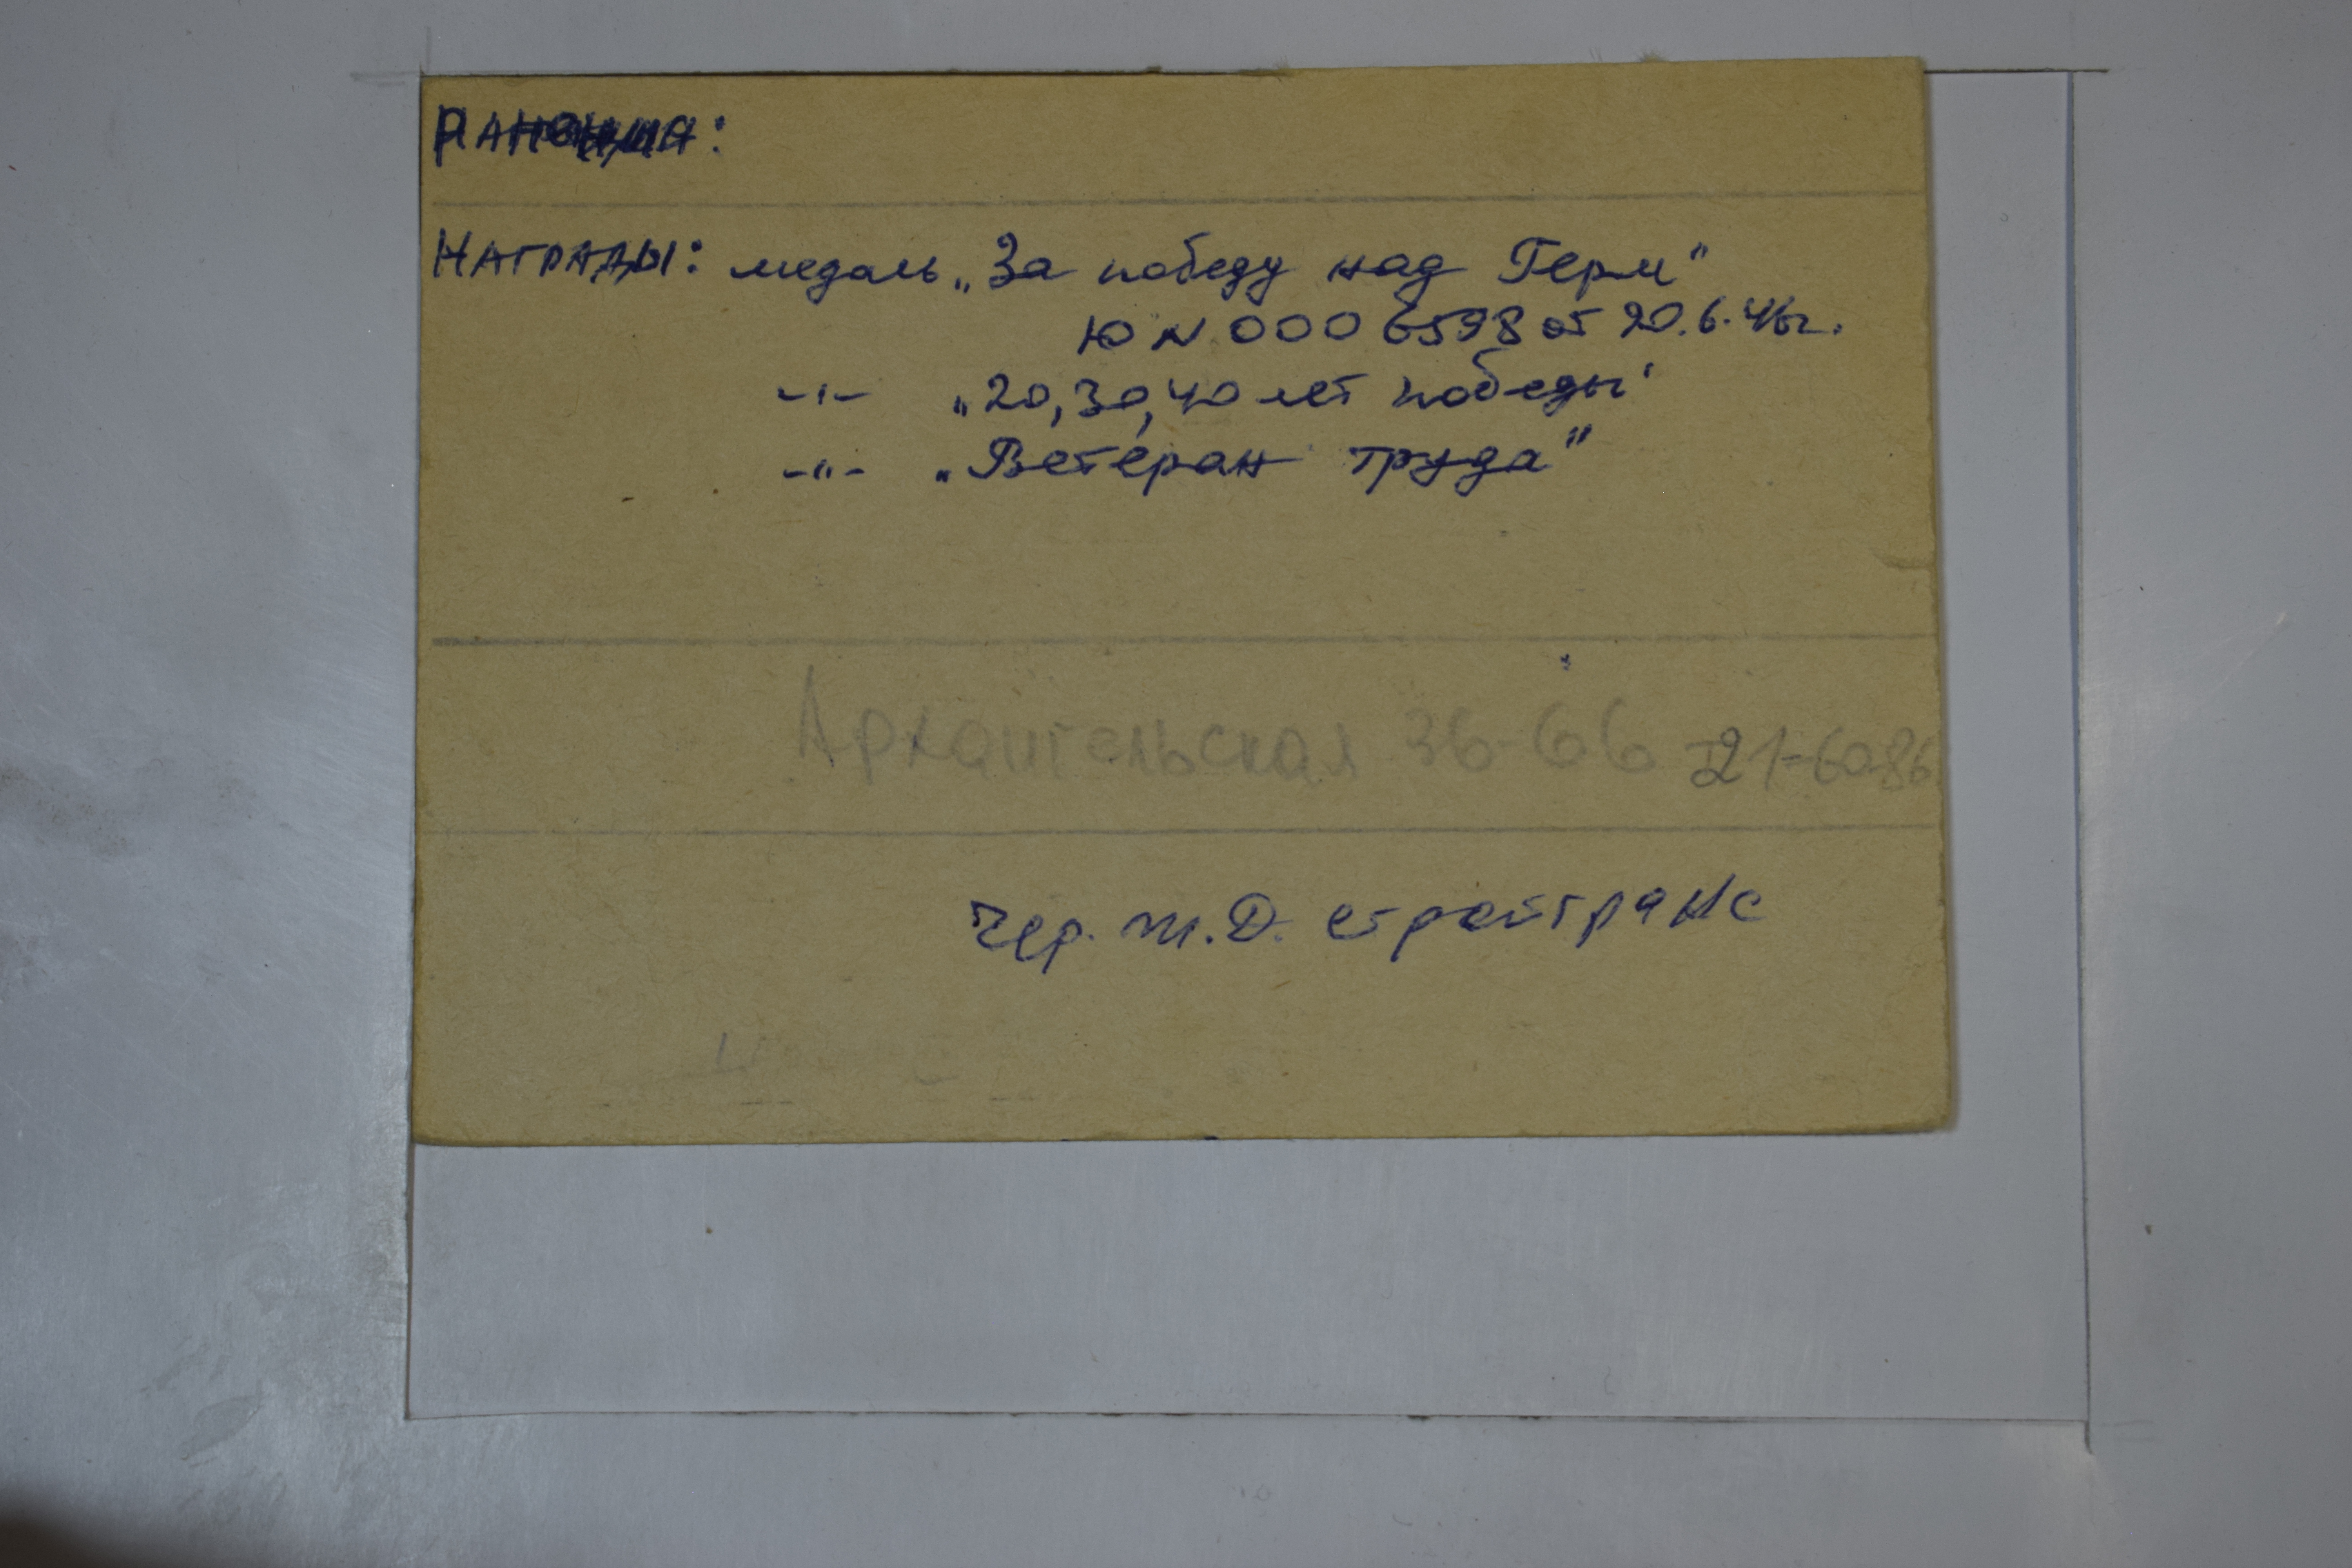 РАНЕНИЯ:
НАГРАДЫ: медаль „За победу над Герм"
Ю № 000 6598 от 20.6.46г.
-"- „20, 30, 40 лет победы"
-"- „Ветеран труда"
Архангельская 36-66 т 21-60-86
Чер. Ж.Д. стройтранс